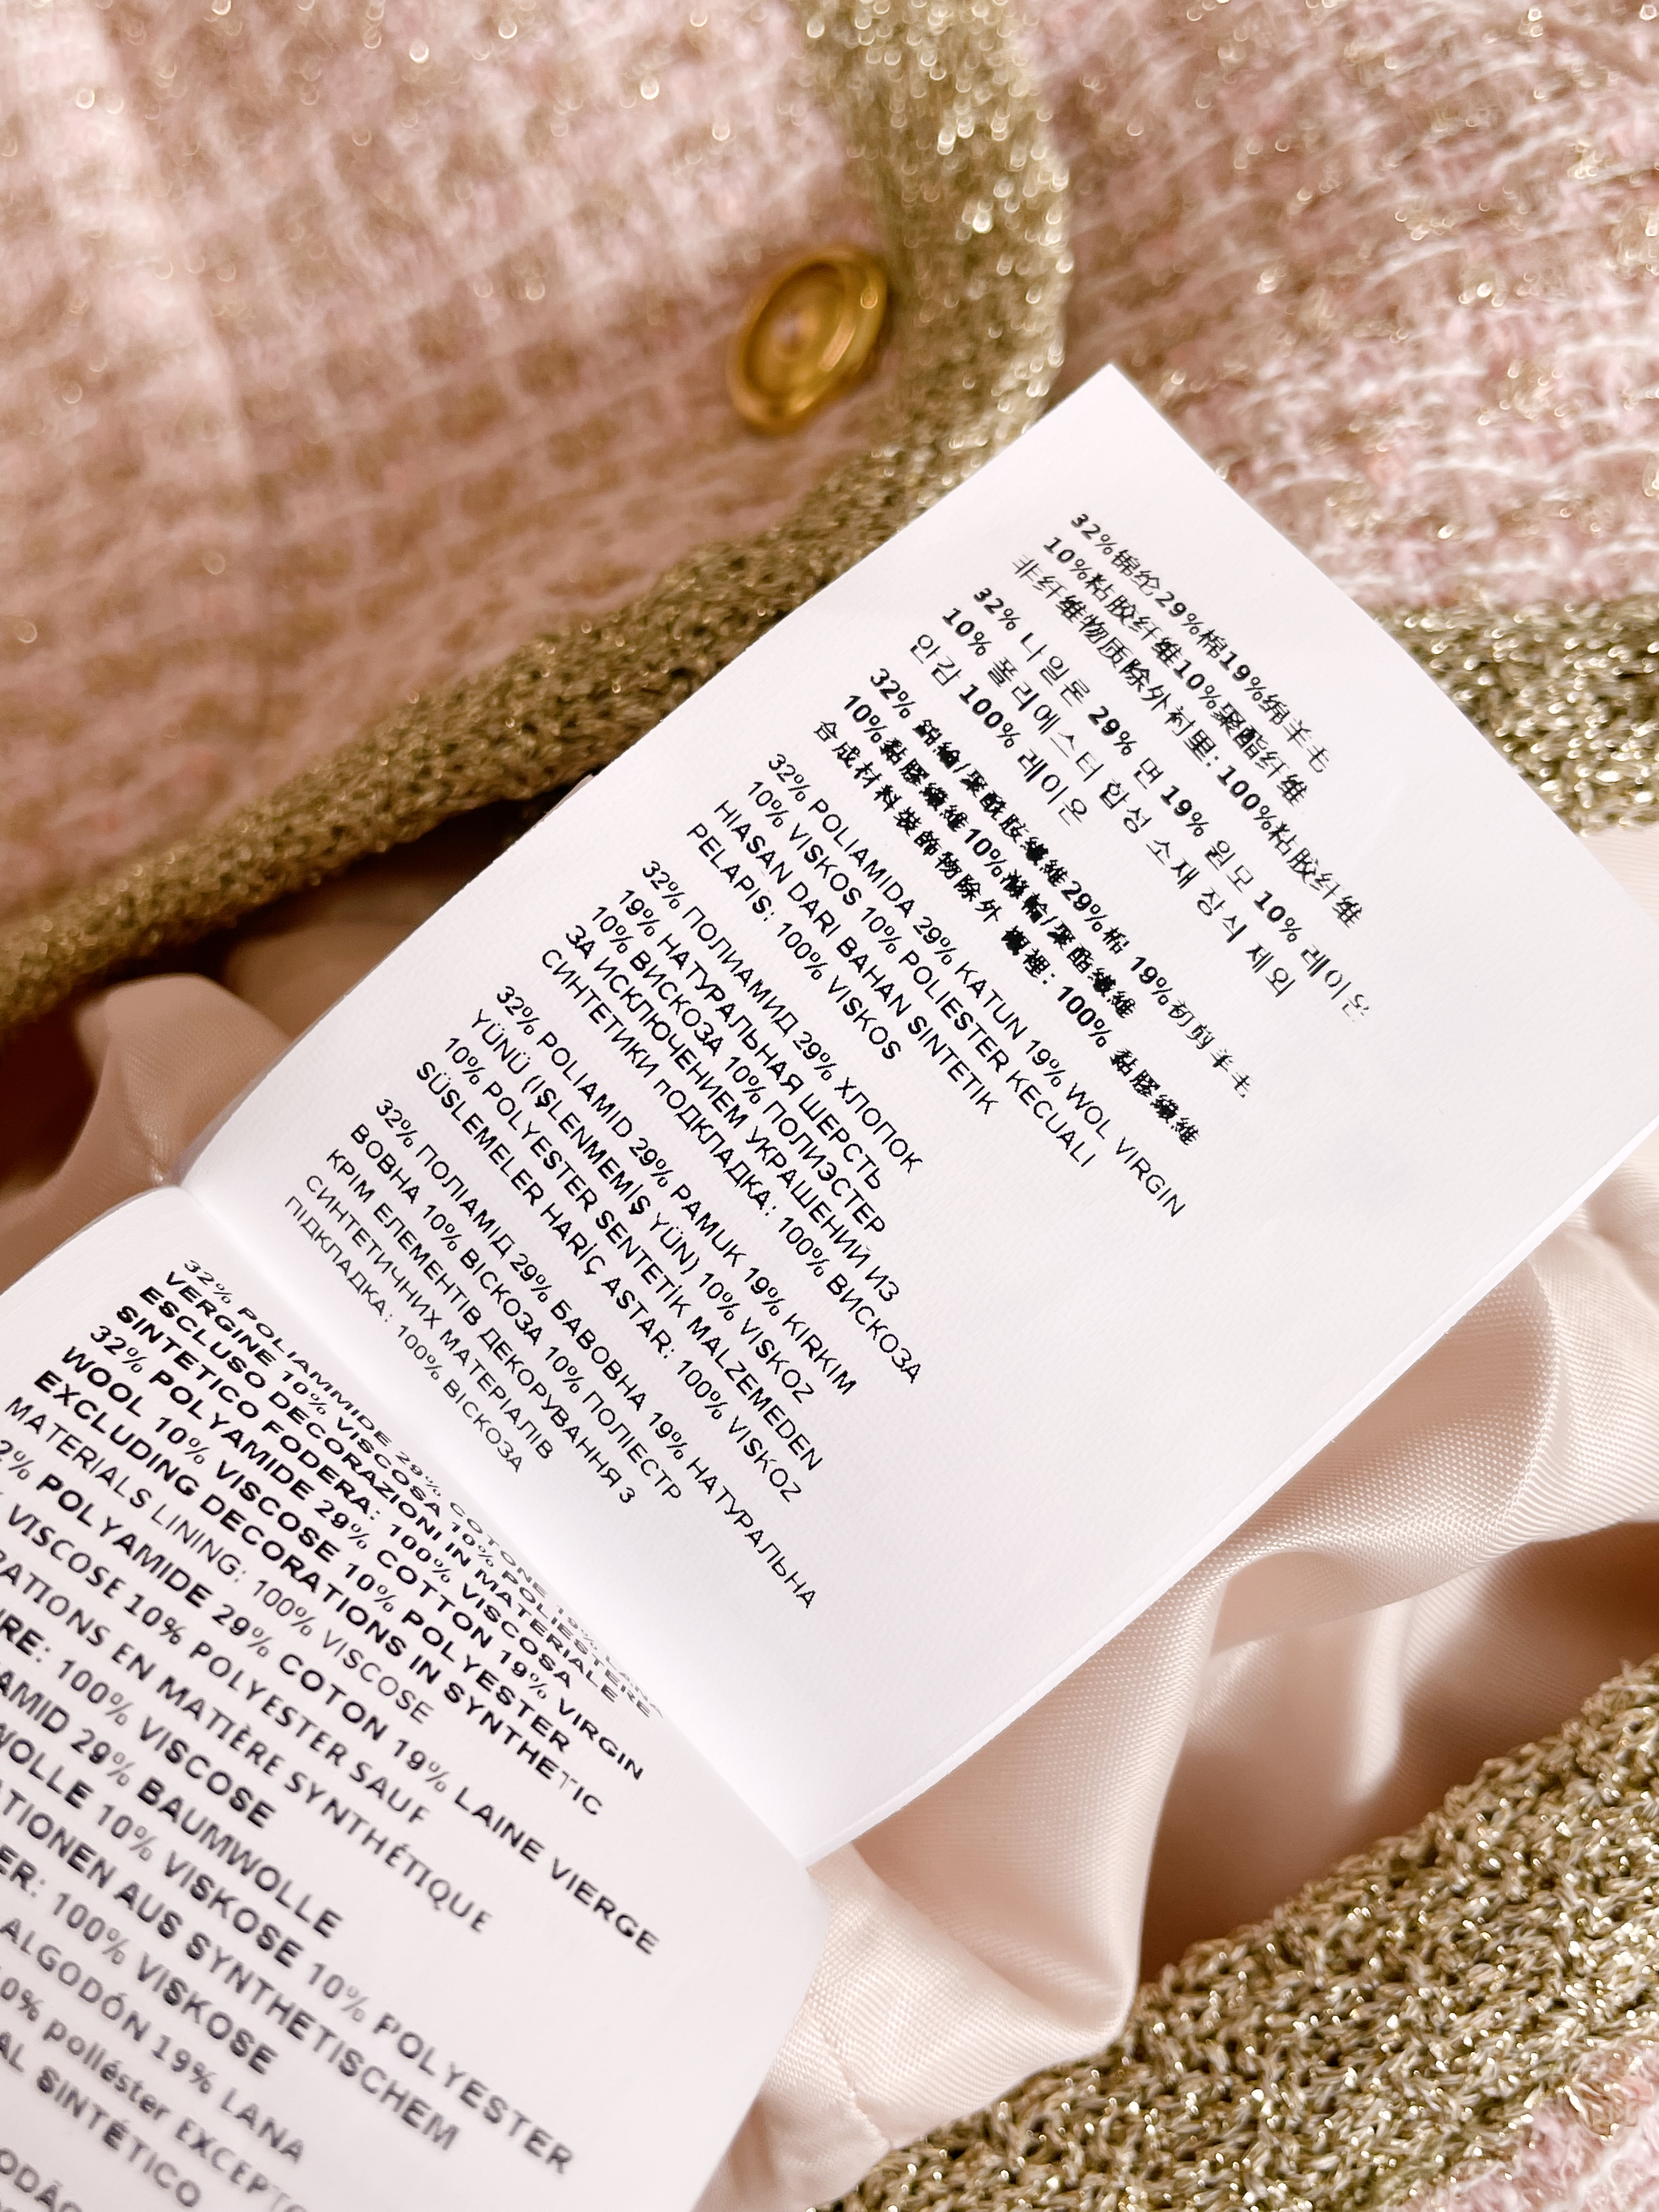 32%锦纶29%棉19%绵羊毛
10%粘胶纤维10%聚酯纤维
非纤维物质除外衬里: 100%粘胶纤维
32% 나일론 29% 면 19% 원모 10% 레이온
10% 폴리에스터 합성 소재 장식 제외
안감 100% 레이온
32% 錦綸/聚酰胺纖維29%棉 19%初剪羊毛
10%黏膠纖維 10%滌輪/聚酯纖維
合成材料裝飾物除外 襯裡: 100% 黏膠纖維
32% POLIAMIDA 29% KATUN 19% WOL VIRGIN
10% VISKOS 10% POLIESTER KECUALI
HIASAN DARI BAHAN SINTETIK
PELAPIS: 100% VISKOS
32% ПОЛИАМИД 29% ХЛОПОК
19% НАТУРАЛЬНАЯ ШЕРСТЬ
10% ВИСКОЗА 10% ПОЛИЭСТЕР
ЗА ИСКЛЮЧЕНИЕМ УКРАШЕНИЙ ИЗ
СИНТЕТИКИ ПОДКЛАДКА: 100% ВИСКОЗА
32% POLIAMID 29% PAMUK 19% KIRKIM
YÜNÜ (IŞLENMEMİŞ YÜN) 10% VISKOZ
10% POLYESTER SENTETİK MALZEMEDEN
SÜSLEMELER HARİÇ ASTAR: 100% VISKOZ
32% ПОЛІАМІД 29% БАВОВНА 19% НАТУРАЛЬНА
ВОВНА 10% ВІСКОЗА 10% ПОЛІЕСТР
КРІМ ЕЛЕМЕНТІВ ДЕКОРУВАННЯ З
СИНТЕТИЧНИХ МАТЕРІАЛІВ
ПІДКЛАДКА: 100% ВІСКОЗА
32% POLIAMMIDE 29% COTONE 19% LANA
VERGINE 10% VISCOSA 10% POLIESTERE
ESCLUSO DECORAZIONI IN MATERIALE
SINTETICO FODERA: 100% VISCOSA
32% POLYAMIDE 29% COTTON 19% VIRGIN
WOOL 10% VISCOSE 10% POLYESTER
EXCLUDING DECORATIONS IN SYNTHETIC
MATERIALS LINING: 100% VISCOSE
POLYAMIDE 29% COTON 19% LAINE VIERGE
VISCOSE 10% POLYESTER SAUF
EN MATIÈRE SYNTHÉTIQUE
100% VISCOSE
29% BAUMWOLLE
10% VISKOSE 10% POLYESTER
AUS SYNTHETISCHEM
100% VISKOSE
ALGODÓN 19% LANA
poliéster
SINTÉTICO